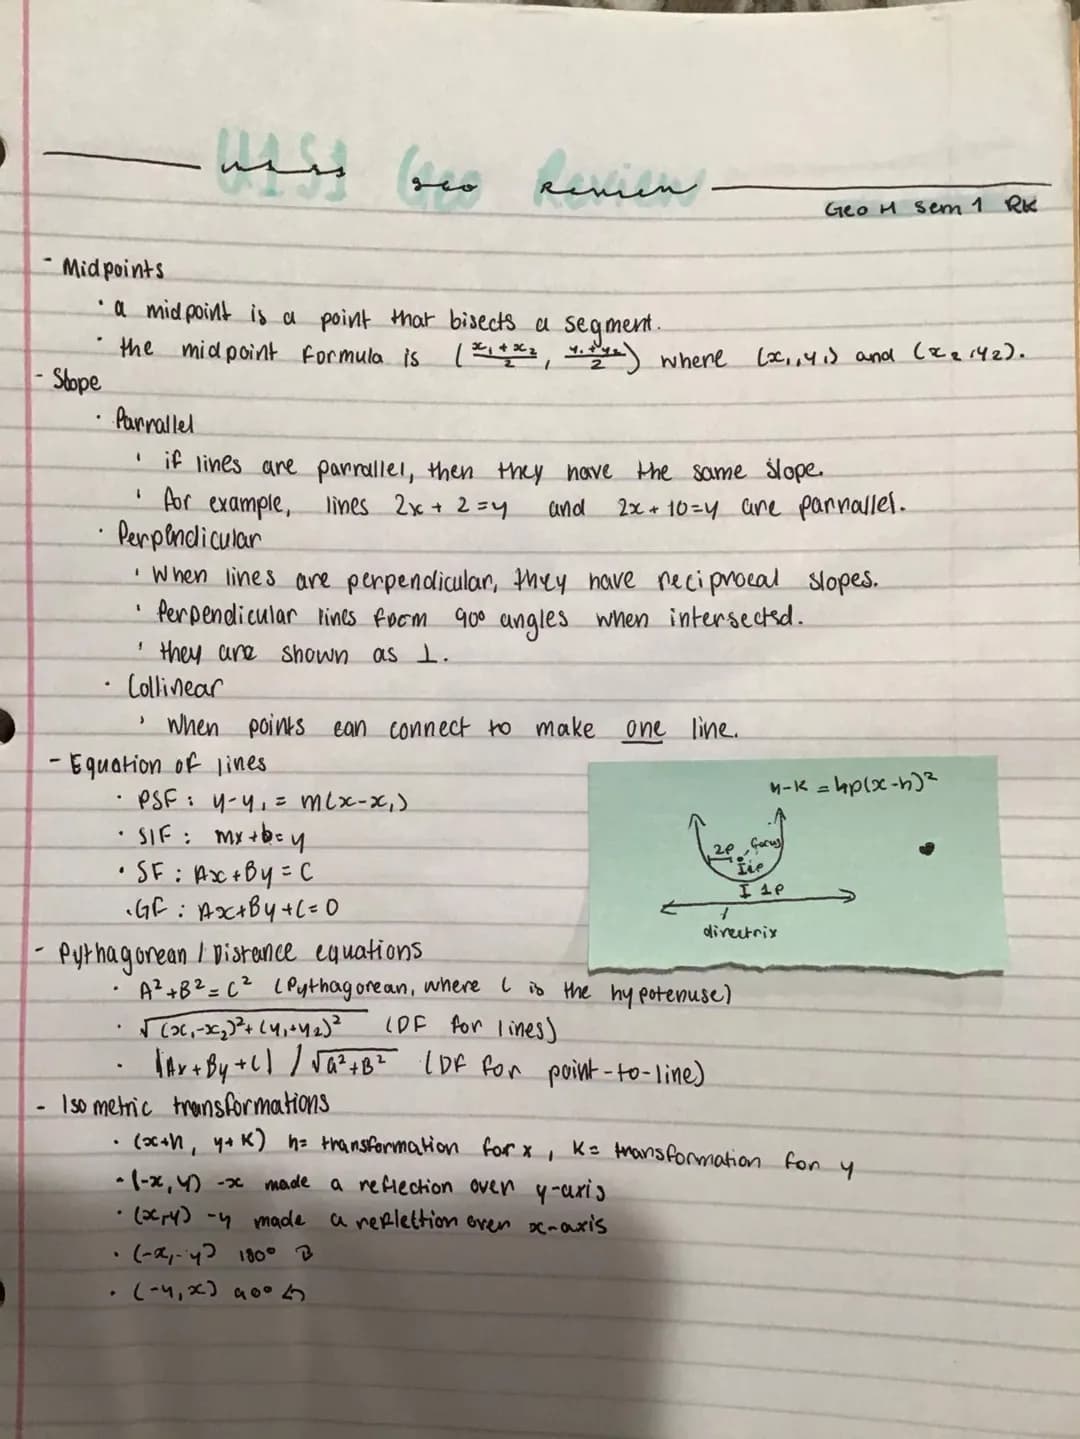 U1S1 Geo Review
Geo H Sem 1 RK
- Midpoints
• a midpoint is a point that bisects a segment.
• the midpoint formula is (x₁+x₂/2, y₁+y₂/2) where (x₁,y₁) and (x₂,y₂).
- Slope
• Parrallel
' if lines are parrallel, then they have the same slope.
' for example, lines 2x + 2 = y and 2x + 10 = y are parrallel.
• Perpendicular
' When lines are perpendicular, they have reciprocal slopes.
' Perpendicular lines form 90° angles when intersected.
' they are shown as ⊥.
• Collinear
' When points can connect to make one line.
- Equation of lines
• PSF: y-y₁ = m(x-x₁)
• SIF: mx+b=y
• SF: Ax+By = C
• GF: Ax+By+C=0
y-k = 4p(x-h)²
2p focus
1p
directrix
- Pythagorean / Distance equations
• A²+B²=C² (Pythagorean, where C is the hypotenuse)
• √(x₁-x₂)²+(y₁+y₂)² (DF for lines)
• |Ax+By+C| / √a²+B² (DF for point-to-line)
- Isometric transformations
• (x+h, y+k) h= transformation for x, k= transformation for y
• (-x, y) -x made a reflection over y-axis
• (x,-y) -y made a reflettion over x-axis
• (-x,-y) 180°
• (-y,x) 90°